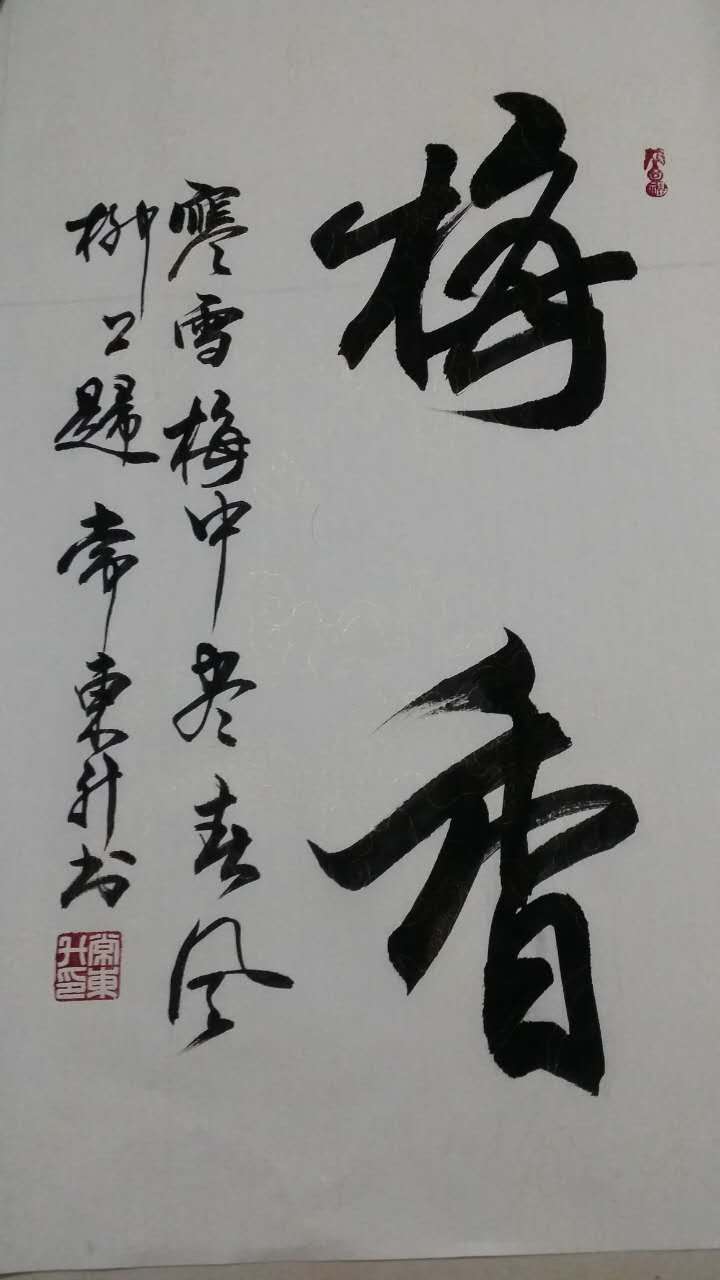 梅香
寒雪梅中尽春风
柳上歸 常東升书
常東升印